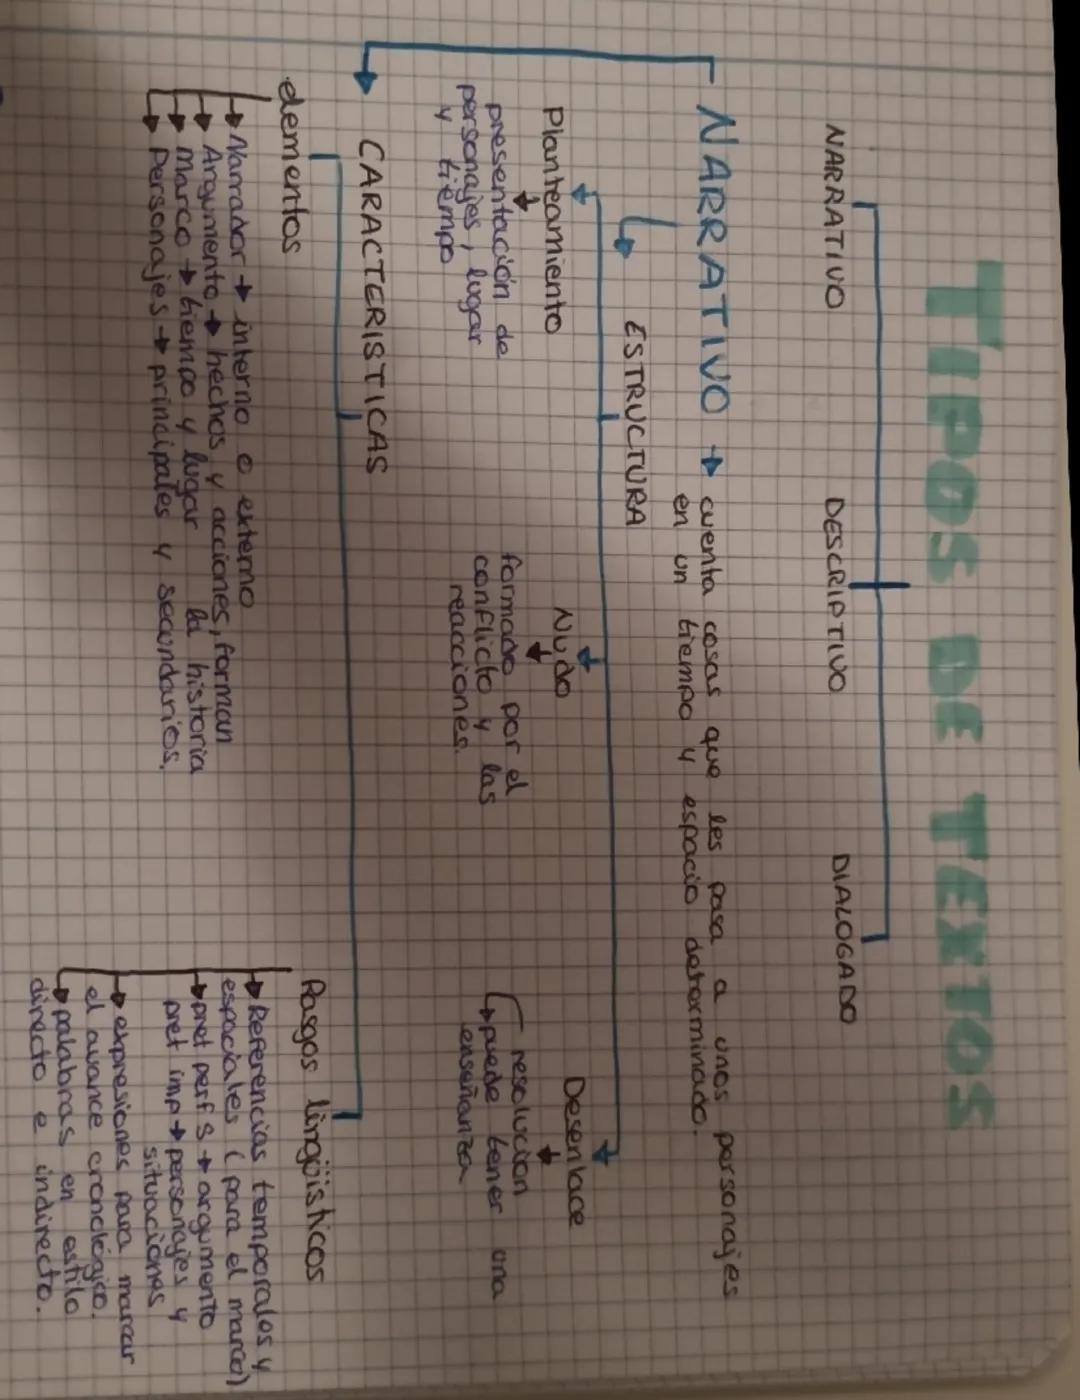 TIPOS DE TEXTOS
NARRATIVO
DESCRIPTIVO
DIALOGADO
NARRATIVO → cuenta cosas que les pasa a unos personajes
en un tiempo y espacio determinado.
ESTRUCTURA
Planteamiento
presentación de
personajes, lugar
y tiempo
Nudo
formado por el
conflicto y las
reacciones.
Desenlace
resolucion
→ puede tener una
enseñanza
CARACTERISTICAS
elementos
→ Narrador → interno o externo
→ Argumento → hechos y acciones, forman
la historia
→ Marco → tiempo y lugar
→ Personajes → principales y secundarios.
Rasgos lingüísticos
→ Referencias temporales y
espaciales (para el marco)
→ pret perf s → argumento
pret imp → personajes y
situaciones
→ expresiones para marcar
el avance cronológico.
→ palabras en estilo
directo e indirecto.